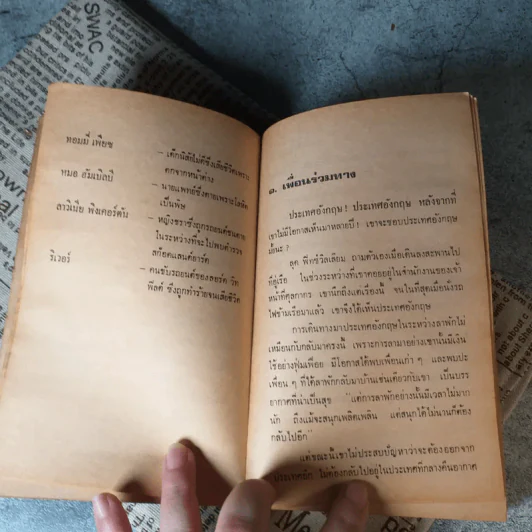 SWAC
ทอมมี่ เพียซ
– เด็กนิสัยไม่ดีซึ่งเสียชีวิตเพราะ
ตกจากหน้าต่าง
หมอ ฮัมเบิลบี
– นายแพทย์ซึ่งตายเพราะโลหิต
เป็นพิษ
ลาวิเนีย พิงเคอร์ตัน
– หญิงชราซึ่งถูกรถยนต์ชนตาย
ในระหว่างที่จะไปพบตำรวจ
สก๊อตแลนด์ยาร์ด
ริเวอร์
– คนขับรถยนต์ของลอร์ด วิท
ฟีลด์ ซึ่งถูกทำร้ายจนเสียชีวิต
๑. เพื่อนร่วมทาง
ประเทศอังกฤษ ! ประเทศอังกฤษ หลังจากที่
เขาไม่มีโอกาสเห็นมาหลายปี ! เขาจะชอบประเทศอังกฤษ
ไหมนะ ?
ลุค ฟิทซ์วิลเลียม ถามตัวเองเมื่อเดินลงสะพานไป
ที่อู่เรือ ในช่วงระหว่างที่เขาคอยอยู่ในสำนักงานของเจ้า
หน้าที่ศุลกากร เขานึกถึงแต่เรื่องนี้ จนในที่สุดเมื่อนั่งรถ
ไฟข้ามเรือมาแล้ว เขาจึงได้เห็นประเทศอังกฤษ
การเดินทางมาประเทศอังกฤษในระหว่างลาพักไม่
เหมือนกับกลับมาครั้งนี้ เพราะการลามาอย่างเขานั้นมีเงิน
ใช้อย่างฟุ่มเฟือย มีโอกาสได้พบเพื่อนเก่า ๆ และพบปะ
เพื่อน ๆ ที่ได้ลาพักกลับมาบ้านเช่นเดียวกับเขา เป็นบรร
ยากาศที่น่าเป็นสุข "แต่การลาพักอย่างนั้นมีเวลาไม่มาก
นัก ถึงแม้จะสนุกเพลิดเพลิน แต่สนุกได้ไม่นานก็ต้อง
กลับไปอีก"
แต่ขณะนี้เขาไม่ประสบปัญหาว่าจะต้องออกจาก
ประเทศอีก ไม่ต้องกลับไปอยู่ในประเทศที่กลางคืนอากาศ